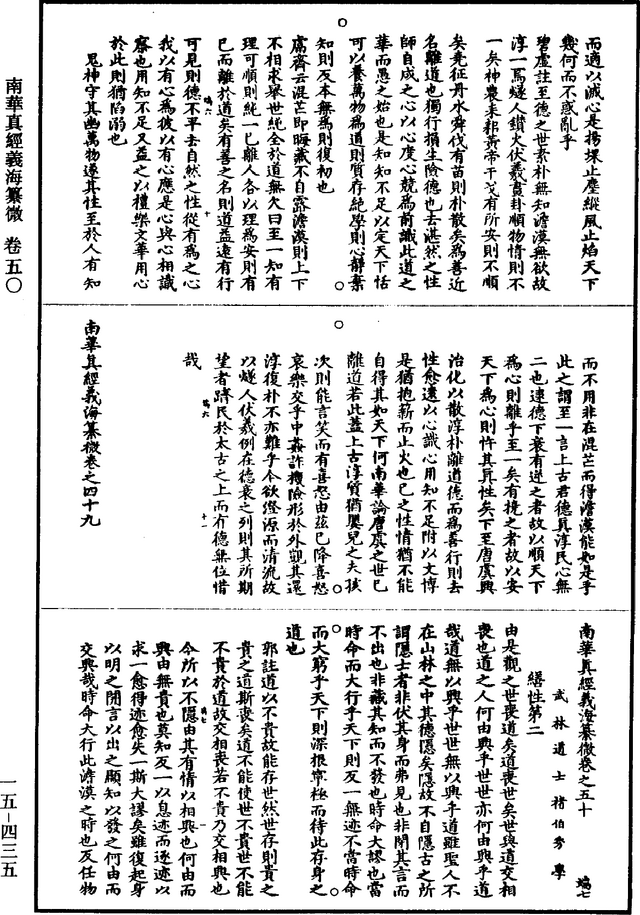 而適以滅心是揚堁止塵縱風止焰天下
幾何而不惑亂乎
碧虛註至德之世素朴無知澹漠無欲故
淳一焉燧人鑽火伏羲畫卦順物情則不
一矣神農耒耜黃帝干戈有所安則不順
矣堯征丹水舜伐有苗則朴散矣為善近
名離道也獨行損生險德也去湛然之性
師自成之心以心度心競為前識此道之
華而愚之始也是知知不足以定天下恬
可以養萬物為道則質存絕學則心靜棄
知則反本無為則復初也
鬳齋云混芒即晦藏不自露澹漠則上下
不相求舉世純全於道無欠曰至一知有
理可順則純一已離人各以理為安則有
已而離於道矣有善之名則道益遠有行
可見則德不平去自然之性從有為之心
我以有心為彼以有心應是心與心相識
察也用知不足又益之以禮樂文華用心
於此則猶陷溺也
鬼神守其幽萬物遂其性至於人有知
而不用非在混芒而得澹漠能如是乎
此之謂至一言上古君德真淳民心無
二也逮德下衰有逆之者故以順天下
為心則離乎至一矣有撓之者故以安
天下為心則忤其真性矣下至唐虞興
治化以散淳朴離道德而為善行則去
性愈遠以心識心用知不足附以文博
是猶抱薪而止火也已之性情猶不能
自得其如天下何南華論唐虞之世已
離道若此蓋上古淳質猶嬰兒之未孩
次則能言笑而有喜怒由茲已降喜怒
哀樂交乎中姦詐機險形於外觀其還
淳復朴不亦難乎今欲澄源而清流故
以燧人伏羲例在德衰之列則其所期
望者躋民於太古之上而有德無位惜
哉
南華真經義海纂微卷之四十九
南華真經義海纂微卷之五十
武林道士褚伯秀學
繕性第二
由是觀之世喪道矣道喪世矣世與道交相
喪也道之人何由興乎世世亦何由興乎道
哉道無以興乎世世無以興乎道雖聖人不
在山林之中其德隱矣隱故不自隱古之所
謂隱士者非伏其身而弗見也非閉其言而
不出也非藏其知而不發也時命大謬也當
時命而大行乎天下則反一無迹不當時命
而大窮乎天下則深根寧極而待此存身之
道也
郭註道以不貴故能存世然世存則貴之
貴之道斯喪矣道不能使世不貴世不能
不貴於道故交相喪若不貴乃交相興也
今所以不隱由其有情以相與也何由而
興由無貴也莫知反一以息迹而逐迹以
求一愈得迹愈失一斯大謬矣雖復起身
以明之開言以出之顯知以發之何由而
交興哉時命大行此澹漠之時也反任物
南華真經義海纂微 卷五〇
一五-四三五